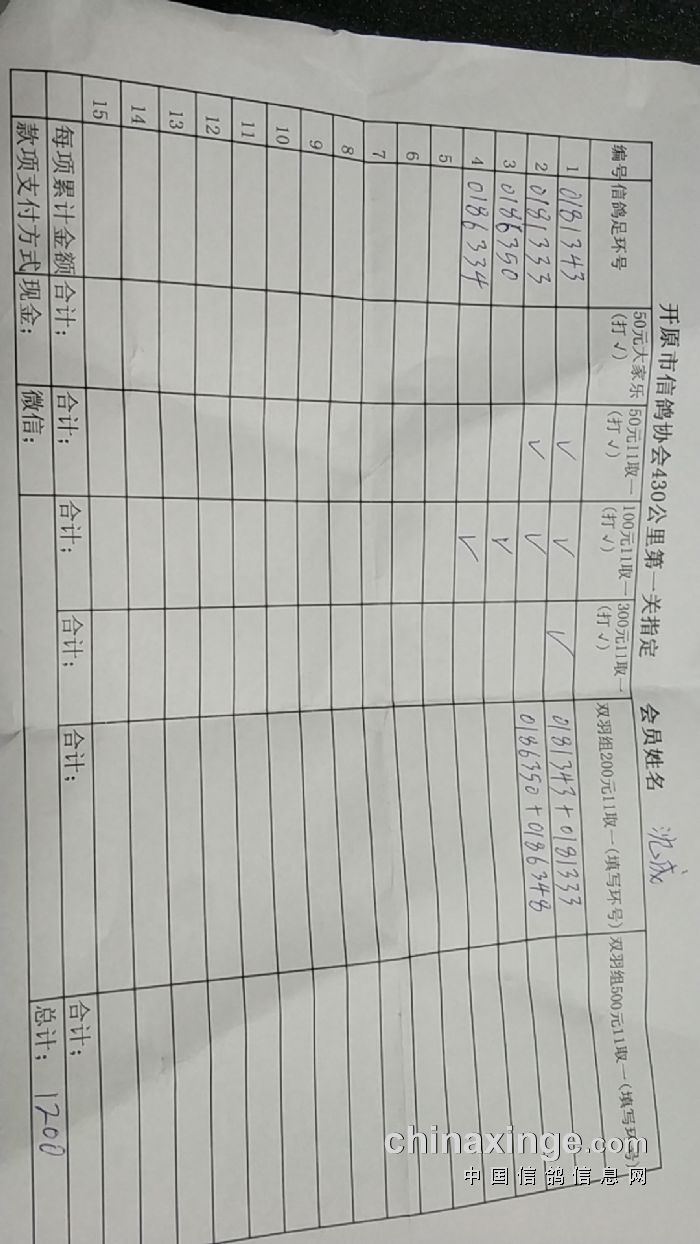 开原市信鸽协会430公里第一关指定 会员姓名 沈成
编号 信鸽足环号 50元大家乐(打√) 50元11取一(打√) 100元11取一(打√) 300元11取一(打√) 双羽组200元11取一(填写环号) 双羽组500元11取一(填写环号)
1 0181343 √ √ √ 0181343+0181333
2 0181333 √ √ 0186350+0186348
3 0186350 √
4 0186334 √
5
6
7
8
9
10
11
12
13
14
15
每项累计金额 合计: 合计: 合计: 合计: 合计: 合计:
款项支付方式 现金: 微信: 总计: 1200
chinaxinge.com
中国信鸽信息网